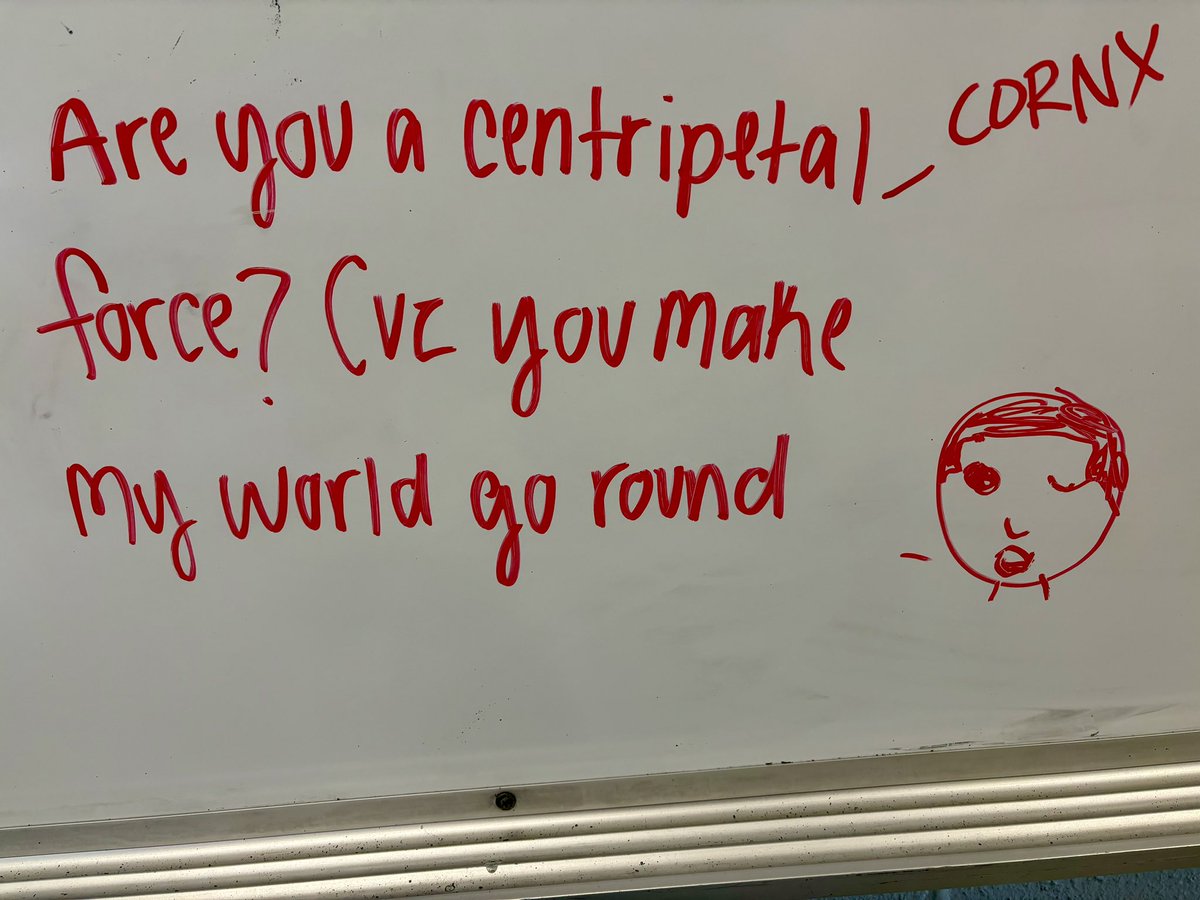 Are you a centripetal
– CORNX
force? Cuz you make
my world go round